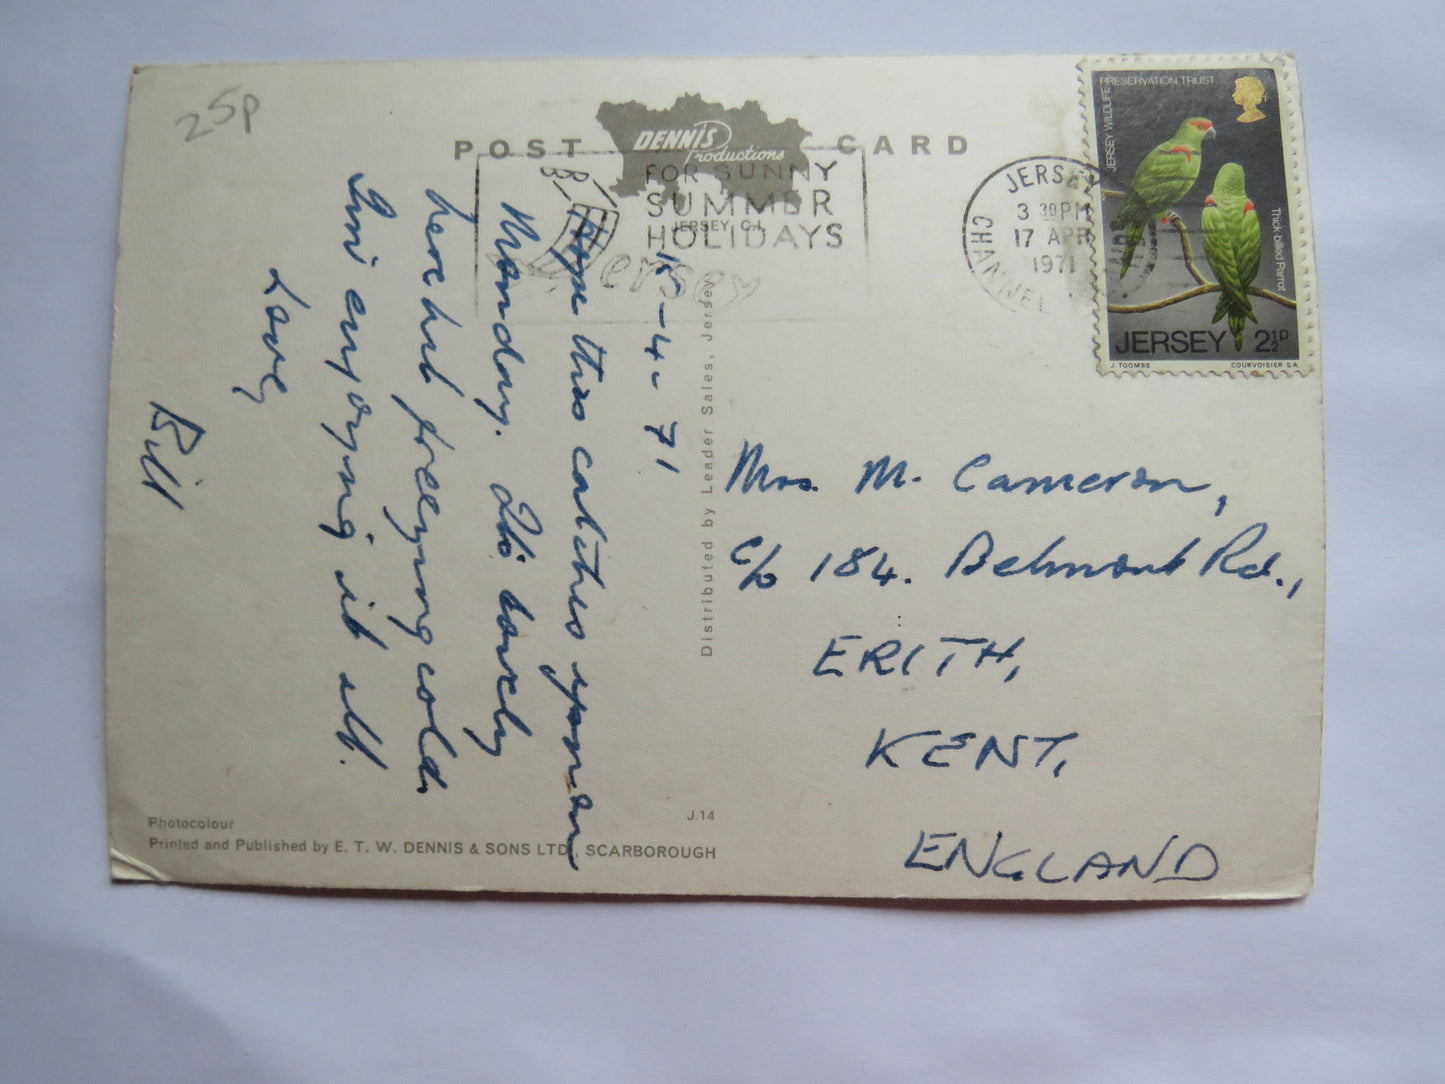 25p
POST CARD
DENNIS
Productions
JERSEY, C.I.
FOR SUNNY
SUMMER
HOLIDAYS
Jersey
JERSEY
3 30PM
17 APR
1971
CHANNEL
JERSEY WILDLIFE
PRESERVATION TRUST
Thick-billed Parrot
JERSEY 2½p
J. TOOMBS COURVOISIER S.A.
-4-71
Hope this catches you on
Monday. It's lovely
here but freezing cold.
I'm enjoying it all.
Love,
Bill
Mrs. M. Cameron,
c/o 184. Belmont Rd.,
ERITH,
KENT,
ENGLAND
Distributed by Leader Sales, Jersey
Photocolour
J.14
Printed and Published by E. T. W. DENNIS & SONS LTD., SCARBOROUGH